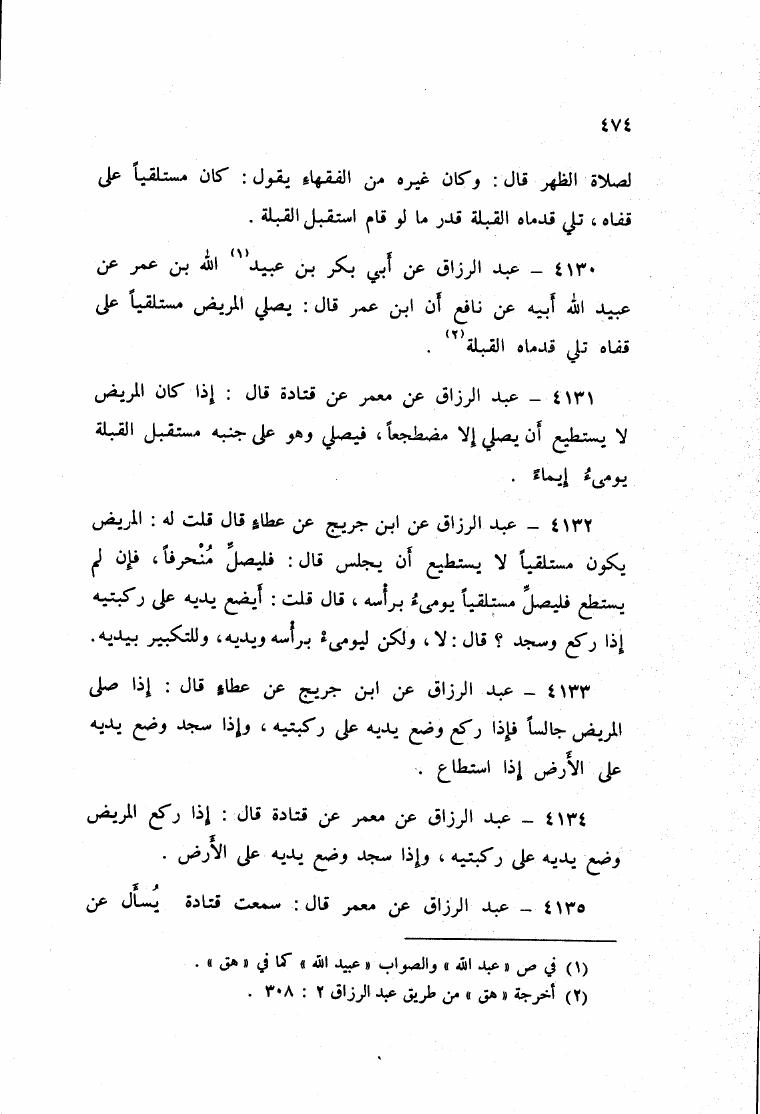 ٤٧٤
لصلاة الظهر قال : وكان غيره من الفقهاء يقول : كان مستلقياً على
قفاه ، تلي قدماه القبلة قدر ما لو قام استقبل القبلة .
٤١٣٠ – عبد الرزاق عن أبي بكر بن عبيد(١) الله بن عمر عن
عبيد الله أبيه عن نافع أن ابن عمر قال : يصلي المريض مستلقياً على
قفاه تلي قدماه القبلة(٢) .
٤١٣١ – عبد الرزاق عن معمر عن قتادة قال : إذا كان المريض
لا يستطيع أن يصلي إلا مضطجعاً ، فيصلي وهو على جنبه مستقبل القبلة
يومىءُ إيماءً .
٤١٣٢ – عبد الرزاق عن ابن جريج عن عطاءٍ قال قلت له : المريض
يكون مستلقياً لا يستطيع أن يجلس قال : فليصلِّ مُنْحرفاً ، فإن لم
يستطع فليصلِّ مستلقياً يومىءُ برأسه ، قال قلت : أيضع يديه على ركبتيه
إذا ركع وسجد ؟ قال : لا ، ولكن ليومىءْ برأسه ويديه، وللتكبير بيديه.
٤١٣٣ – عبد الرزاق عن ابن جريج عن عطاءٍ قال : إذا صلى
المريض جالساً فإذا ركع وضع يديه على ركبتيه ، وإذا سجد وضع يديه
على الأَرض إذا استطاع .
٤١٣٤ – عبد الرزاق عن معمر عن قتادة قال : إذا ركع المريض
وضع يديه على ركبتيه ، وإذا سجد وضع يديه على الأَرض .
٤١٣٥ – عبد الرزاق عن معمر قال : سمعت قتادة يُسأَل عن
(١) في ص « عبد الله » والصواب « عبيد الله » كما في « هق » .
(٢) أخرجة « هق » من طريق عبد الرزاق ٢ : ٣٠٨ .